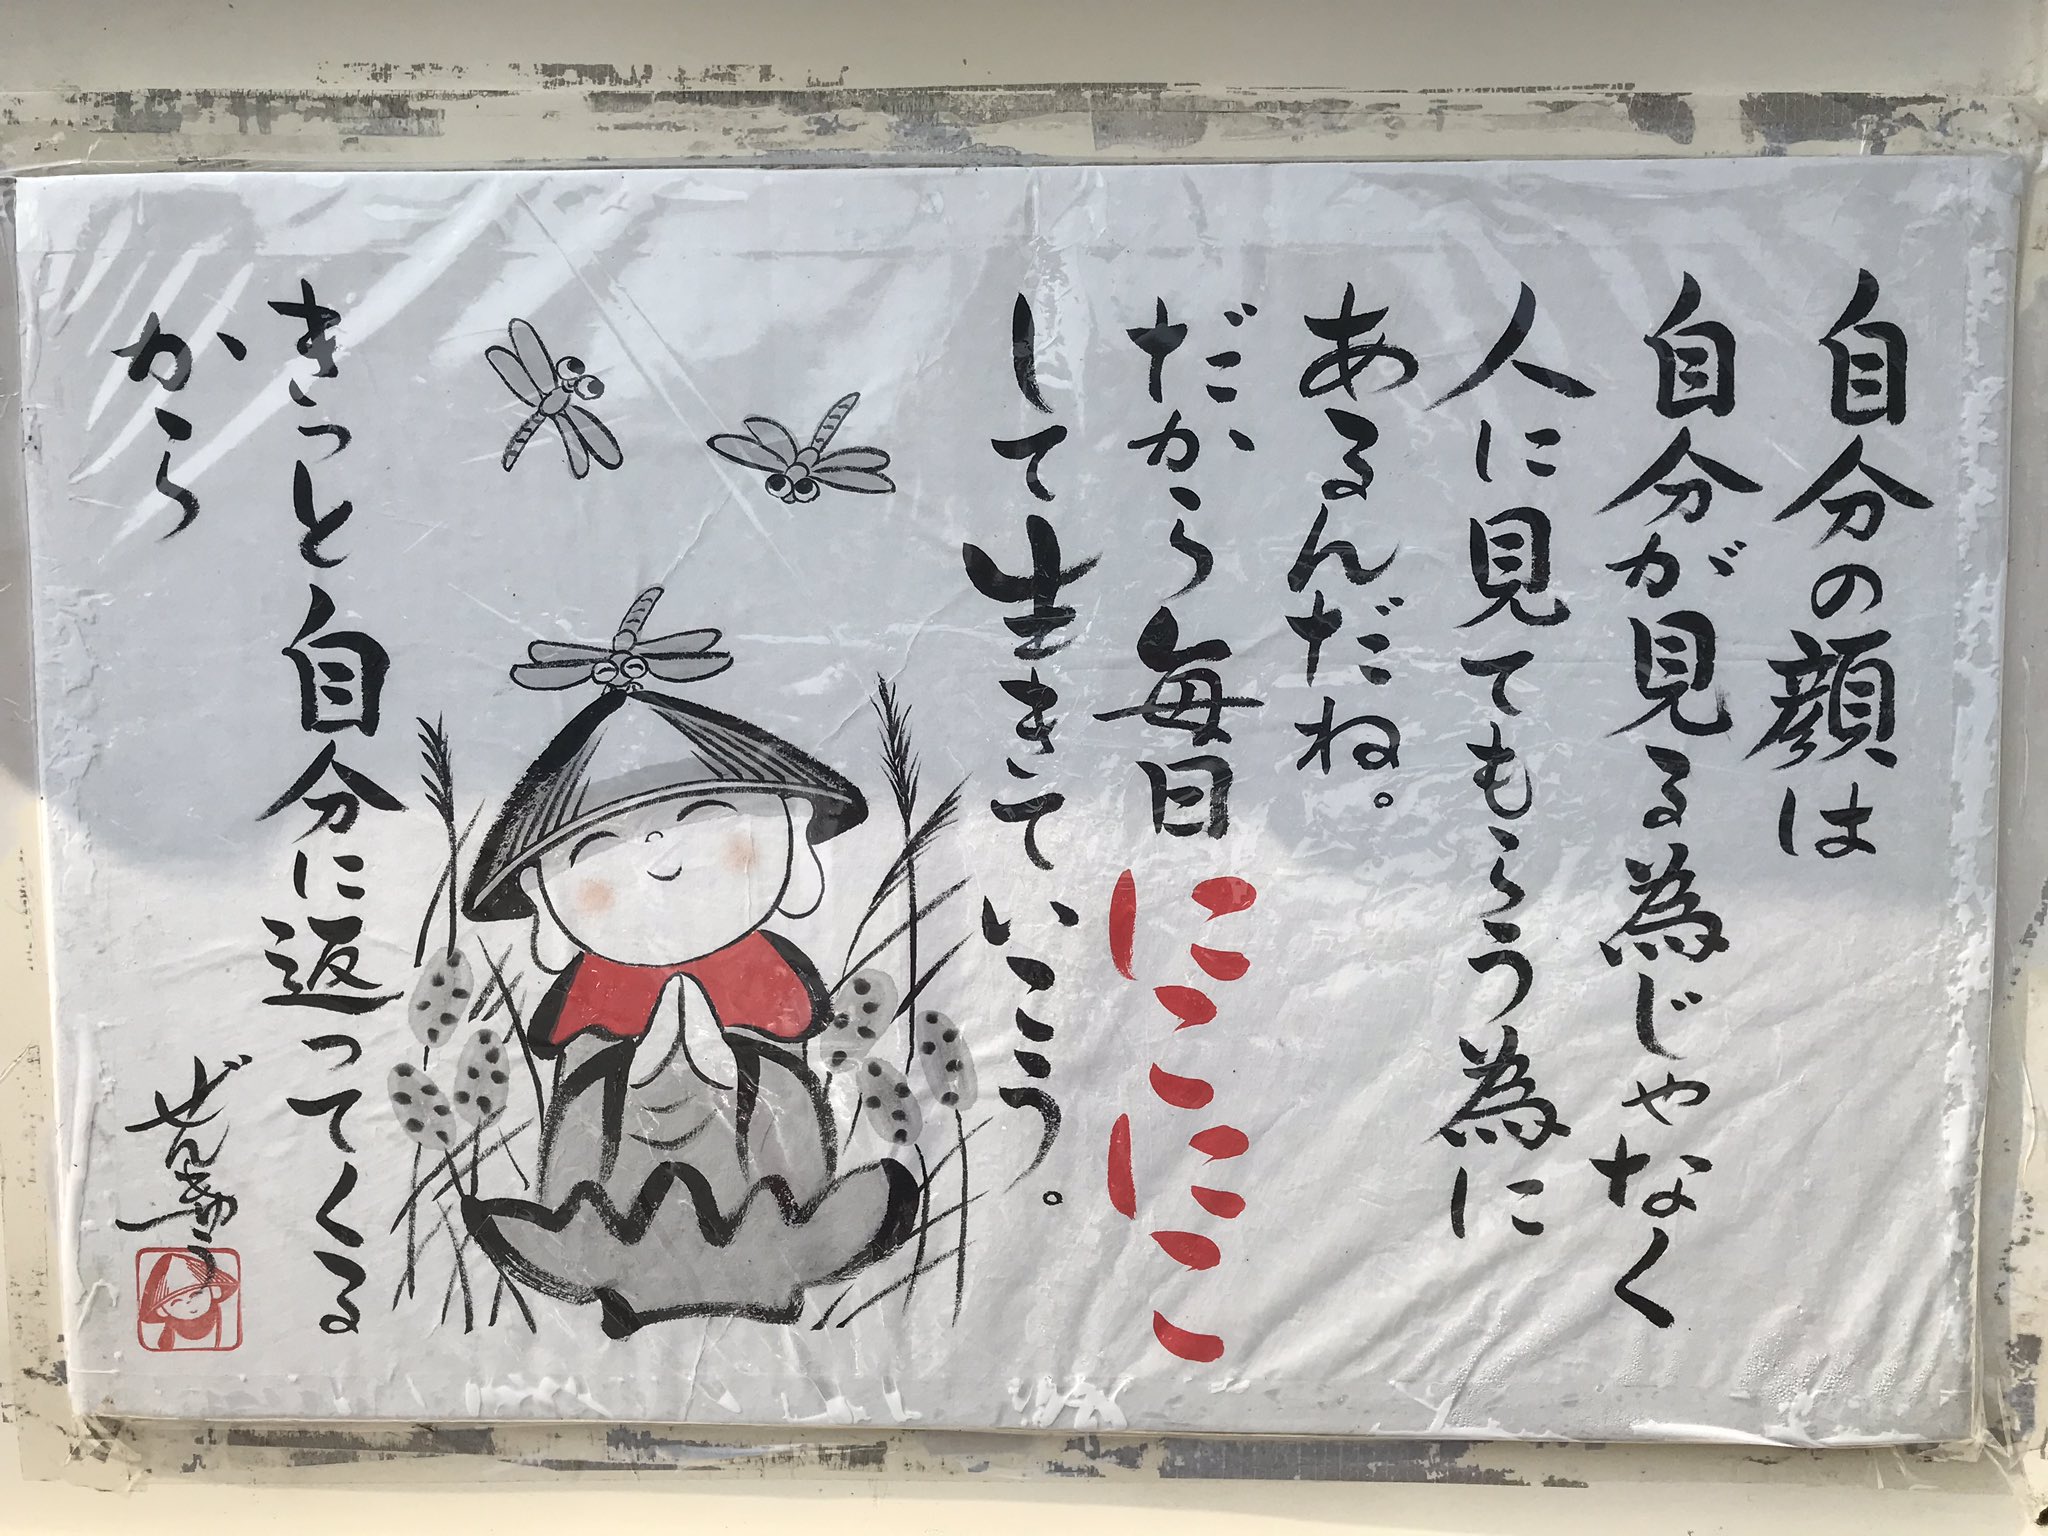 自分の顔は
自分が見る為じゃなく
人に見てもらう為に
あるんだね。
だから毎日にこにこ
して生きていこう。
きっと自分に返ってくる
から